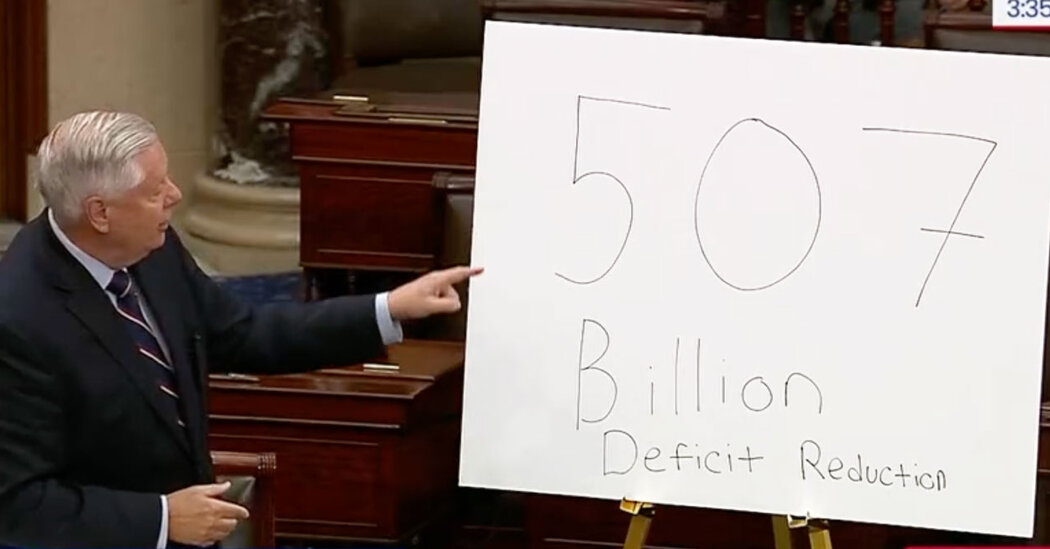 3:35
507
Billion
Deficit Reduction